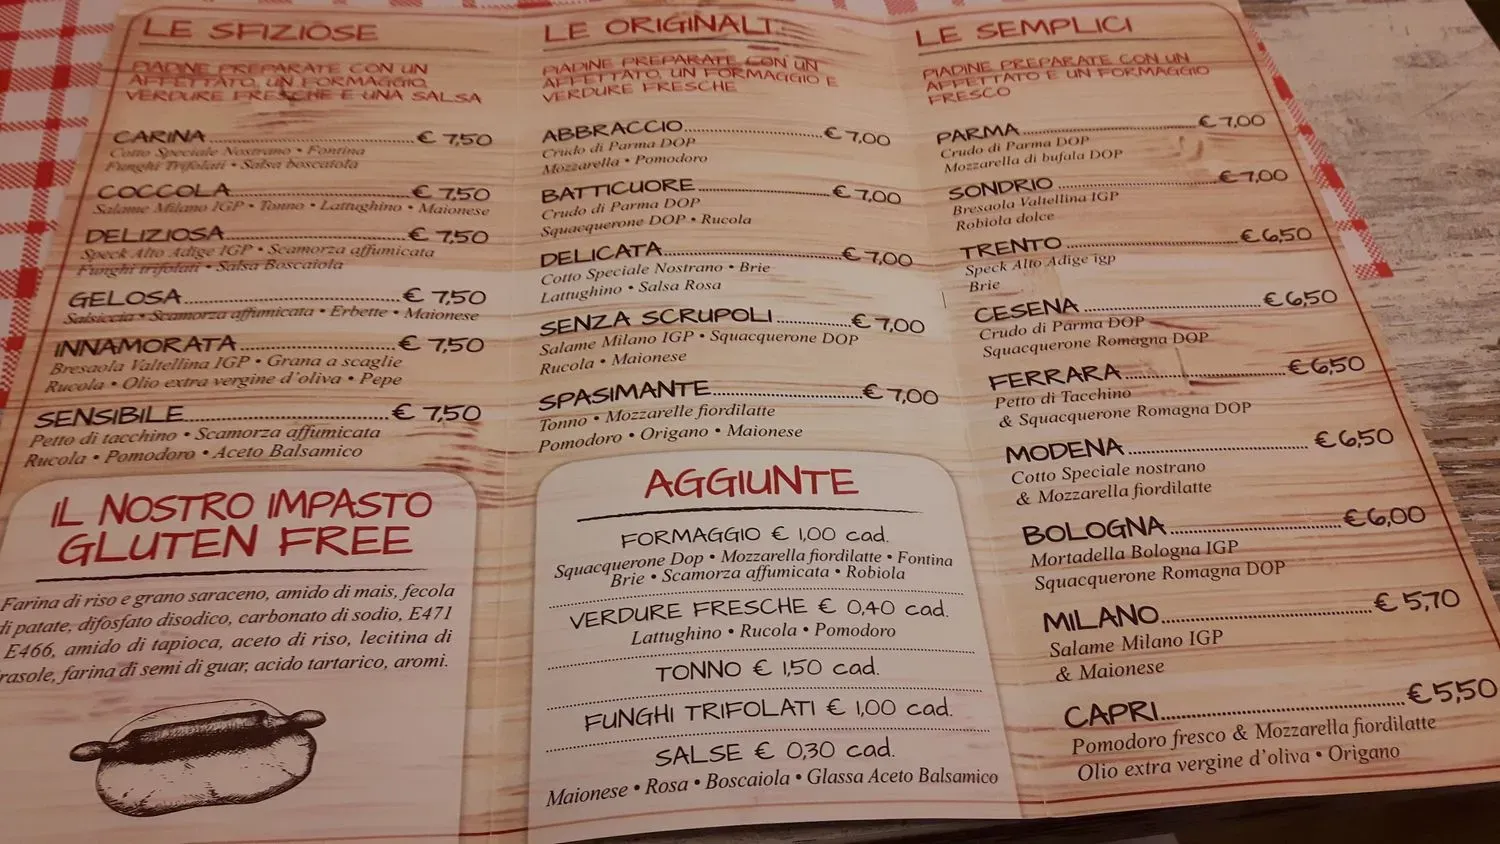 LE SFIZIOSE
PIADINE PREPARATE CON UN
AFFETTATO, UN FORMAGGIO,
VERDURE FRESCHE E UNA SALSA
CARINA.......€ 7,50
Cotto Speciale Nostrano • Fontina
Funghi Trifolati • Salsa boscaiola
COCCOLA.......€ 7,50
Salame Milano IGP • Tonno • Lattughino • Maionese
DELIZIOSA.......€ 7,50
Speck Alto Adige IGP • Scamorza affumicata
Funghi trifolati • Salsa Boscaiola
GELOSA.......€ 7,50
Salsiccia • Scamorza affumicata • Erbette • Maionese
INNAMORATA.......€ 7,50
Bresaola Valtellina IGP • Grana a scaglie
Rucola • Olio extra vergine d'oliva • Pepe
SENSIBILE.......€ 7,50
Petto di tacchino • Scamorza affumicata
Rucola • Pomodoro • Aceto Balsamico
IL NOSTRO IMPASTO
GLUTEN FREE
Farina di riso e grano saraceno, amido di mais, fecola
di patate, difosfato disodico, carbonato di sodio, E471
E466, amido di tapioca, aceto di riso, lecitina di
rasole, farina di semi di guar, acido tartarico, aromi.
LE ORIGINALI
PIADINE PREPARATE CON UN
AFFETTATO, UN FORMAGGIO E
VERDURE FRESCHE
ABBRACCIO.......€ 7,00
Crudo di Parma DOP
Mozzarella • Pomodoro
BATTICUORE.......€ 7,00
Crudo di Parma DOP
Squacquerone DOP • Rucola
DELICATA.......€ 7,00
Cotto Speciale Nostrano • Brie
Lattughino • Salsa Rosa
SENZA SCRUPOLI.......€ 7,00
Salame Milano IGP • Squacquerone DOP
Rucola • Maionese
SPASIMANTE.......€ 7,00
Tonno • Mozzarelle fiordilatte
Pomodoro • Origano • Maionese
AGGIUNTE
FORMAGGIO € 1,00 cad.
Squacquerone Dop • Mozzarella fiordilatte • Fontina
Brie • Scamorza affumicata • Robiola
VERDURE FRESCHE € 0,40 cad.
Lattughino • Rucola • Pomodoro
TONNO € 1,50 cad.
FUNGHI TRIFOLATI € 1,00 cad.
SALSE € 0,30 cad.
Maionese • Rosa • Boscaiola • Glassa Aceto Balsamico
LE SEMPLICI
PIADINE PREPARATE CON UN
AFFETTATO E UN FORMAGGIO
FRESCO
PARMA.......€ 7,00
Crudo di Parma DOP
Mozzarella di bufala DOP
SONDRIO.......€ 7,00
Bresaola Valtellina IGP
Robiola dolce
TRENTO.......€ 6,50
Speck Alto Adige igp
Brie
CESENA.......€ 6,50
Crudo di Parma DOP
Squacquerone Romagna DOP
FERRARA.......€ 6,50
Petto di Tacchino
& Squacquerone Romagna DOP
MODENA.......€ 6,50
Cotto Speciale nostrano
& Mozzarella fiordilatte
BOLOGNA.......€ 6,00
Mortadella Bologna IGP
Squacquerone Romagna DOP
MILANO.......€ 5,70
Salame Milano IGP
& Maionese
CAPRI.......€ 5,50
Pomodoro fresco & Mozzarella fiordilatte
Olio extra vergine d'oliva • Origano